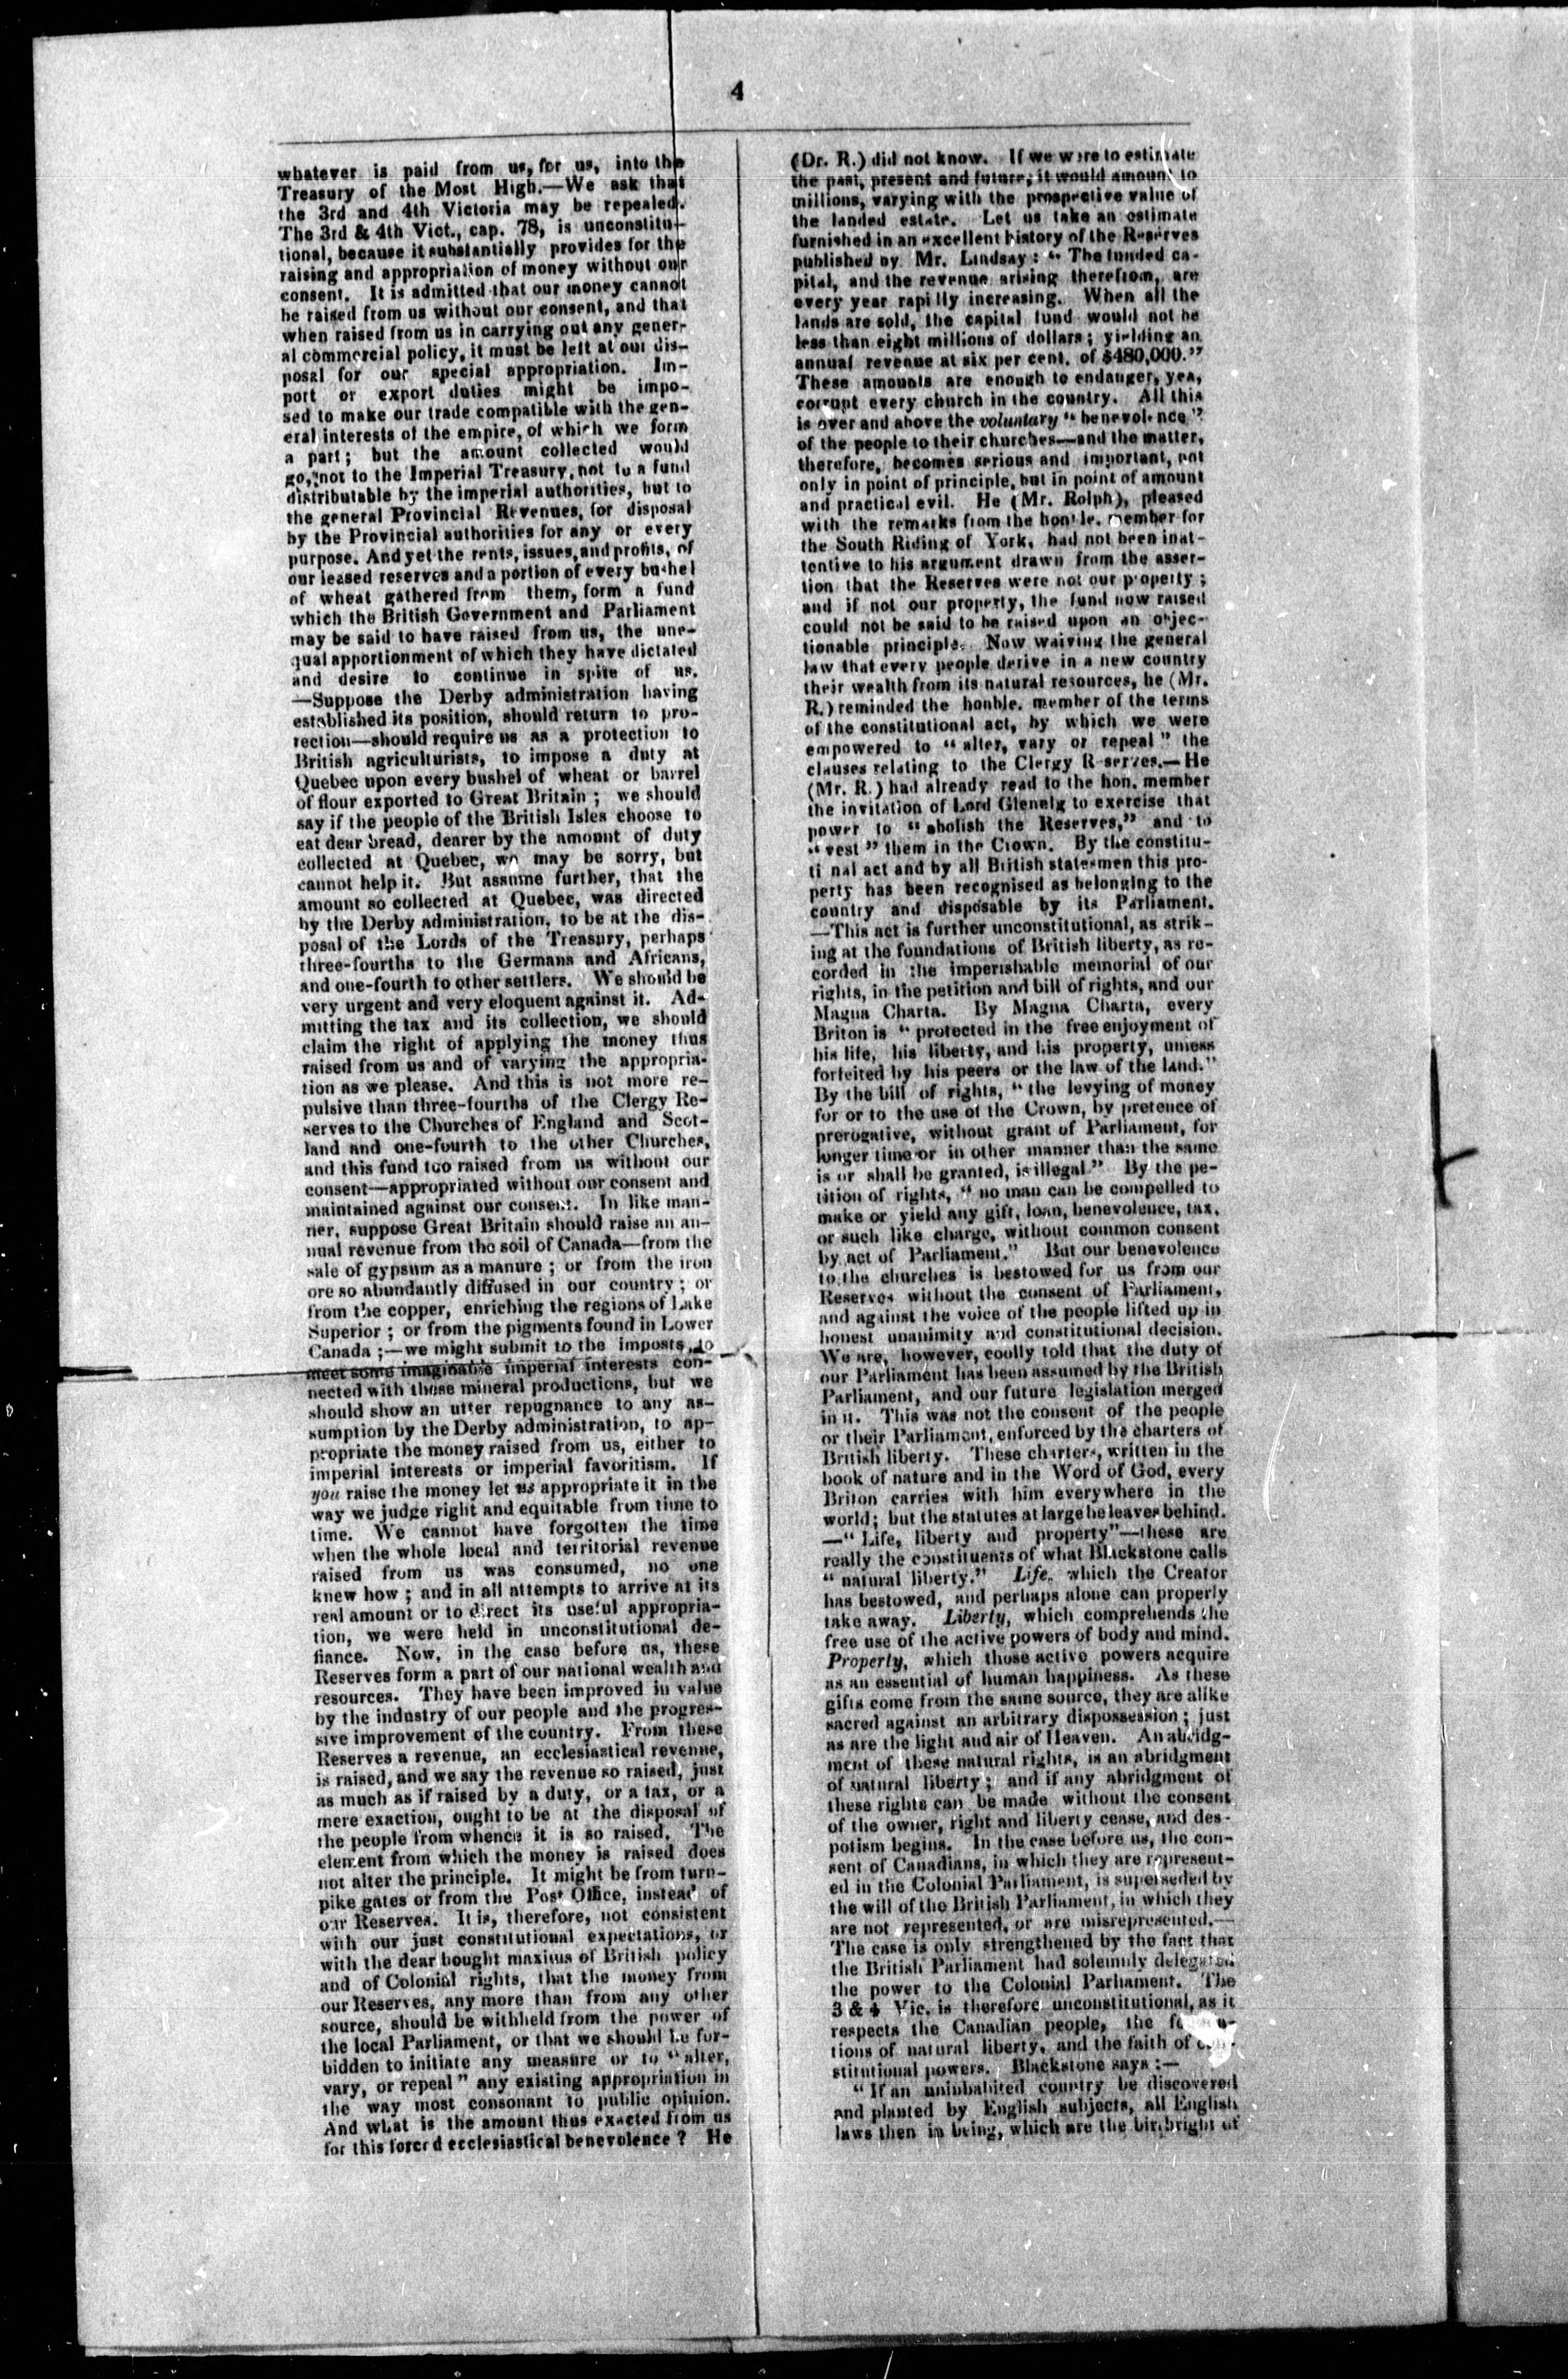 4
whatever is paid from us, for us, into the
Treasury of the Most High.—We ask that
the 3rd and 4th Victoria may be repealed.
The 3rd & 4th Vict., cap. 78, is unconstitu-
tional, because it substantially provides for the
raising and appropriation of money without our
consent. It is admitted that our money cannot
be raised from us without our consent, and that
when raised from us in carrying out any gener-
al commercial policy, it must be left at our dis-
posal for our special appropriation. Im-
port or export duties might be impo-
sed to make our trade compatible with the gen-
eral interests of the empire, of which we form
a part; but the amount collected would
go, not to the Imperial Treasury, not to a fund
distributable by the imperial authorities, but to
the general Provincial Revenues, for disposal
by the Provincial authorities for any or every
purpose. And yet the rents, issues, and profits, of
our leased reserves and a portion of every bushel
of wheat gathered from them, form a fund
which the British Government and Parliament
may be said to have raised from us, the une-
qual apportionment of which they have dictated
and desire to continue in spite of us.
—Suppose the Derby administration having
established its position, should return to pro-
tection—should require us as a protection to
British agriculturists, to impose a duty at
Quebec upon every bushel of wheat or barrel
of flour exported to Great Britain; we should
say if the people of the British Isles choose to
eat dear bread, dearer by the amount of duty
collected at Quebec, we may be sorry, but
cannot help it. But assume further, that the
amount so collected at Quebec, was directed
by the Derby administration, to be at the dis-
posal of the Lords of the Treasury, perhaps
three-fourths to the Germans and Africans,
and one-fourth to other settlers. We should be
very urgent and very eloquent against it. Ad-
mitting the tax and its collection, we should
claim the right of applying the money thus
raised from us and of varying the appropria-
tion as we please. And this is not more re-
pulsive than three-fourths of the Clergy Re-
serves to the Churches of England and Scot-
land and one-fourth to the other Churches,
and this fund too raised from us without our
consent—appropriated without our consent and
maintained against our consent. In like man-
ner, suppose Great Britain should raise an an-
nual revenue from the soil of Canada—from the
sale of gypsum as a manure; or from the iron
ore so abundantly diffused in our country; or
from the copper, enriching the regions of Lake
Superior; or from the pigments found in Lower
Canada;—we might submit to the imposts, to
meet some imaginable imperial interests con-
nected with these mineral productions, but we
should show an utter repugnance to any as-
sumption by the Derby administration, to ap-
propriate the money raised from us, either to
imperial interests or imperial favoritism. If
you raise the money let us appropriate it in the
way we judge right and equitable from time to
time. We cannot have forgotten the time
when the whole local and territorial revenue
raised from us was consumed, no one
knew how; and in all attempts to arrive at its
real amount or to direct its useful appropria-
tion, we were held in unconstitutional de-
fiance. Now, in the case before us, these
Reserves form a part of our national wealth and
resources. They have been improved in value
by the industry of our people and the progres-
sive improvement of the country. From these
Reserves a revenue, an ecclesiastical revenue,
is raised, and we say the revenue so raised, just
as much as if raised by a duty, or a tax, or a
mere exaction, ought to be at the disposal of
the people from whence it is so raised. The
element from which the money is raised does
not alter the principle. It might be from turn-
pike gates or from the Post Office, instead of
our Reserves. It is, therefore, not consistent
with our just constitutional expectations, or
with the dear bought maxims of British policy
and of Colonial rights, that the money from
our Reserves, any more than from any other
source, should be withheld from the power of
the local Parliament, or that we should be for-
bidden to initiate any measure or to "alter,
vary, or repeal" any existing appropriation in
the way most consonant to public opinion.
And what is the amount thus exacted from us
for this forced ecclesiastical benevolence? He
(Dr. R.) did not know. If we were to estimate
the past, present and future; it would amount to
millions, varying with the prospective value of
the landed estate. Let us take an estimate
furnished in an excellent history of the Reserves
published by Mr. Lindsay: "The funded ca-
pital, and the revenue arising therefrom, are
every year rapidly increasing. When all the
lands are sold, the capital fund would not be
less than eight millions of dollars; yielding an
annual revenue at six per cent. of $480,000."
These amounts are enough to endanger, yea,
corrupt every church in the country. All this
is over and above the voluntary "benevolence"
of the people to their churches—and the matter,
therefore, becomes serious and important, not
only in point of principle, but in point of amount
and practical evil. He (Mr. Rolph), pleased
with the remarks from the honble. member for
the South Riding of York, had not been inat-
tentive to his argument drawn from the asser-
tion that the Reserves were not our property;
and if not our property, the fund now raised
could not be said to be raised upon an objec-
tionable principle. Now waiving the general
law that every people derive in a new country
their wealth from its natural resources, he (Mr.
R.) reminded the honble. member of the terms
of the constitutional act, by which we were
empowered to "alter, vary or repeal" the
clauses relating to the Clergy Reserves.—He
(Mr. R.) had already read to the hon. member
the invitation of Lord Glenelg to exercise that
power to "abolish the Reserves," and to
"vest" them in the Crown. By the constitu-
tional act and by all British statesmen this pro-
perty has been recognised as belonging to the
country and disposable by its Parliament.
—This act is further unconstitutional, as strik-
ing at the foundations of British liberty, as re-
corded in the imperishable memorial of our
rights, in the petition and bill of rights, and our
Magna Charta. By Magna Charta, every
Briton is "protected in the free enjoyment of
his life, his liberty, and his property, unless
forfeited by his peers or the law of the land."
By the bill of rights, "the levying of money
for or to the use of the Crown, by pretence of
prerogative, without grant of Parliament, for
longer time or in other manner than the same
is or shall be granted, is illegal." By the pe-
tition of rights, "no man can be compelled to
make or yield any gift, loan, benevolence, tax,
or such like charge, without common consent
by act of Parliament." But our benevolence
to the churches is bestowed for us from our
Reserves without the consent of Parliament,
and against the voice of the people lifted up in
honest unanimity and constitutional decision.
We are, however, coolly told that the duty of
our Parliament has been assumed by the British
Parliament, and our future legislation merged
in it. This was not the consent of the people
or their Parliament, enforced by the charters of
British liberty. These charters, written in the
book of nature and in the Word of God, every
Briton carries with him everywhere in the
world; but the statutes at large he leaves behind.
—"Life, liberty and property"—these are
really the constituents of what Blackstone calls
"natural liberty." Life, which the Creator
has bestowed, and perhaps alone can properly
take away. Liberty, which comprehends the
free use of the active powers of body and mind.
Property, which those active powers acquire
as an essential of human happiness. As these
gifts come from the same source, they are alike
sacred against an arbitrary dispossession; just
as are the light and air of Heaven. An abridg-
ment of these natural rights, is an abridgment
of natural liberty; and if any abridgment of
these rights can be made without the consent
of the owner, right and liberty cease, and des-
potism begins. In the case before us, the con-
sent of Canadians, in which they are represent-
ed in the Colonial Parliament, is superseded by
the will of the British Parliament, in which they
are not represented, or are misrepresented.—
The case is only strengthened by the fact that
the British Parliament had solemnly delegated
the power to the Colonial Parliament. The
3 & 4 Vic. is therefore unconstitutional, as it
respects the Canadian people, the
tions of natural liberty, and the faith of con-
stitutional powers. Blackstone says:—
"If an uninhabited country be discovered
and planted by English subjects, all English
laws then in being, which are the birthright of